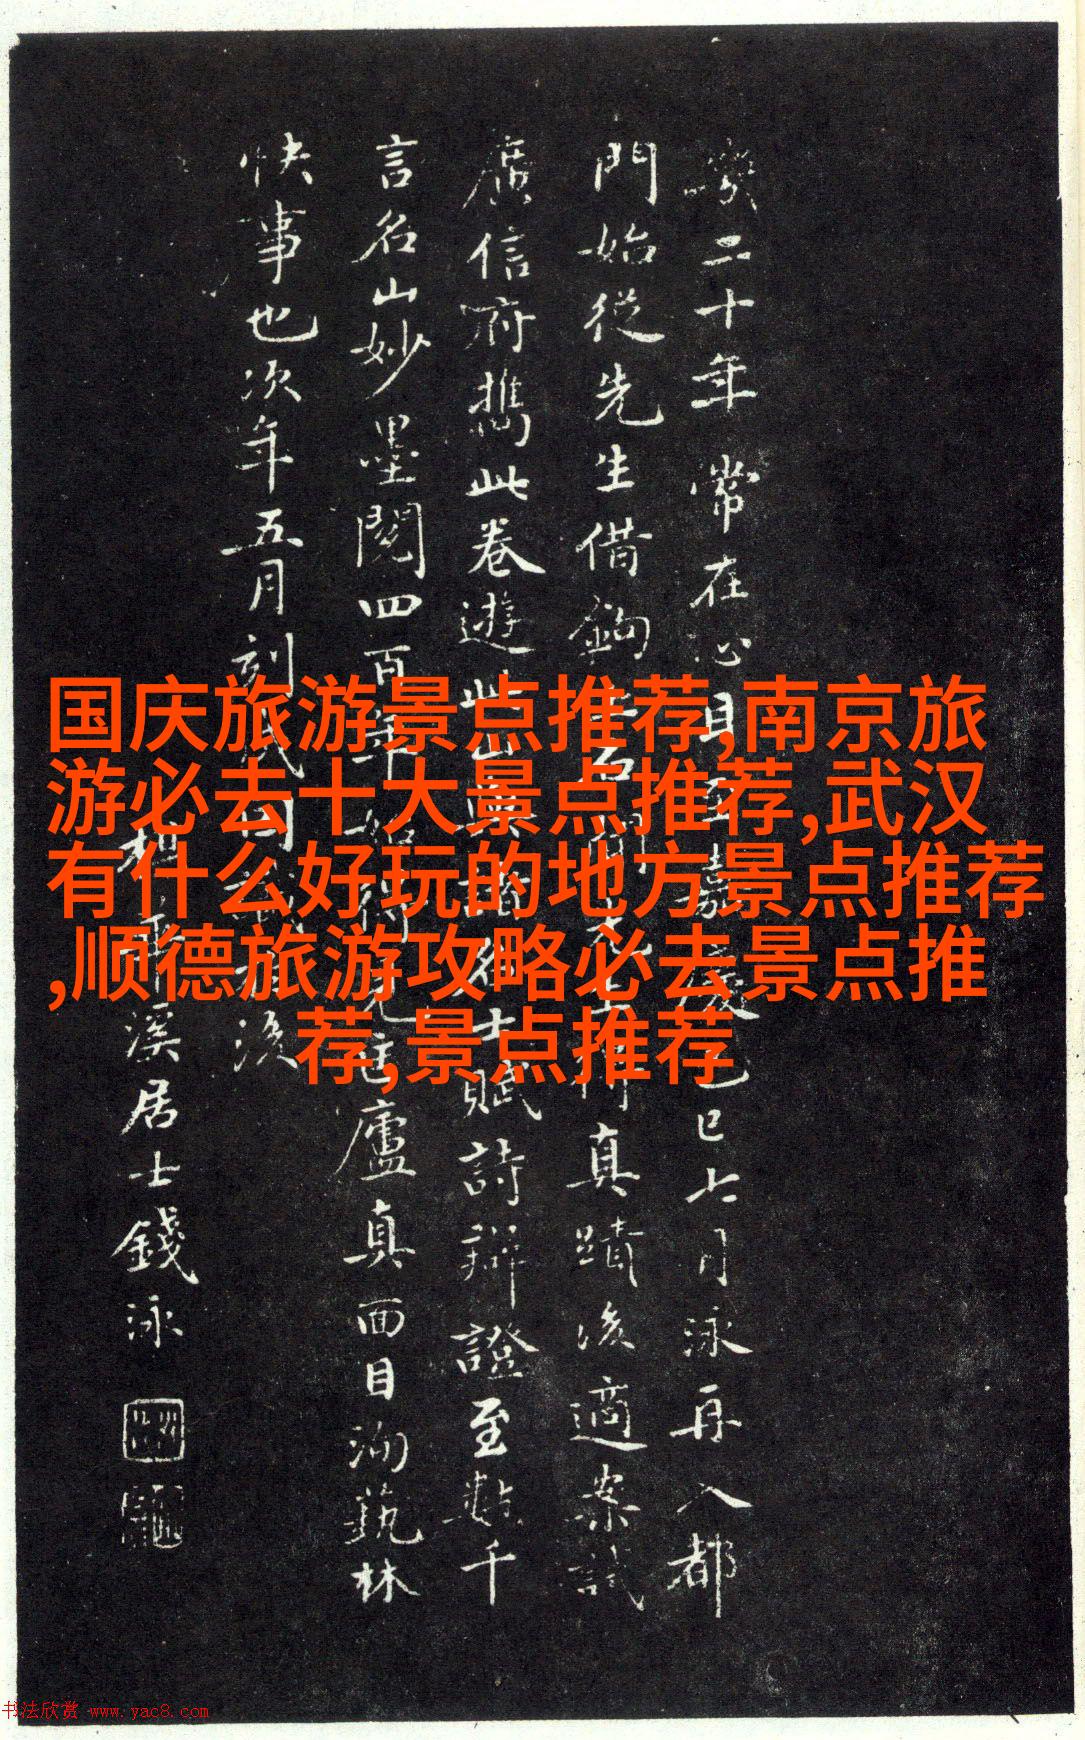 幾二十年常在心目至嘉慶己巳七月泳再入都
門始從先生借鉤真蹟後適案試
廣信府攜此卷遊此山賦詩辯證至數千
言名山妙墨閱四百年始得見匡廬真面目洵藝林
快事也次年五月刻後
梅華溪居士錢泳
国庆旅游景点推荐,南京旅
游必去十大景点推荐,武汉
有什么好玩的地方景点推荐
,顺德旅游攻略必去景点推
荐,景点推荐
书法欣赏 www.yac8.com